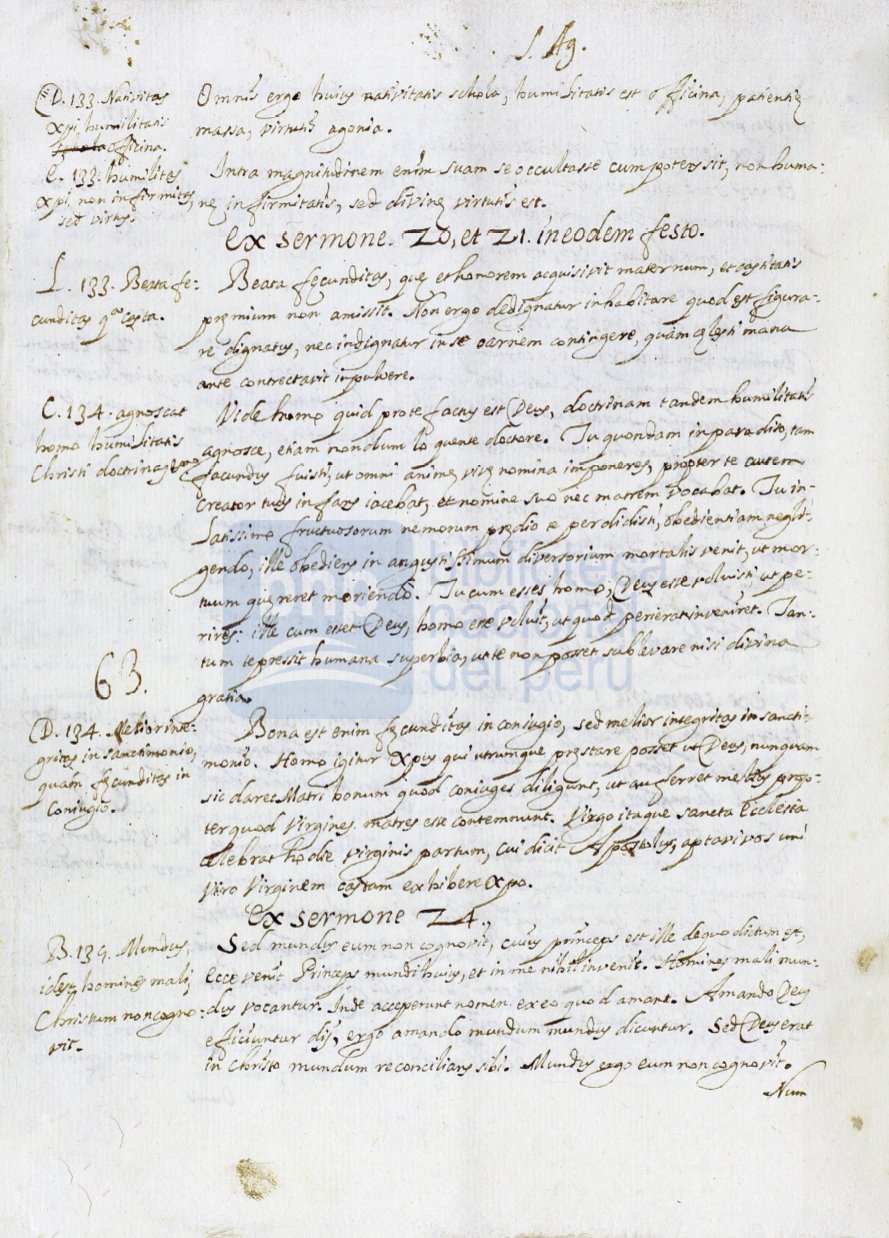 S. Ag.
D. 133. Nativitas
Xpi, humilitatis
officina.
Omnis ergo huius nativitatis schola, humilitatis est officina, patientię
massa, virtutis agonia.
C. 133. humilitas
Xpi, non infirmitas,
sed virtus.
Intra magnitudinem enim suam se occultasse cum potens sit, non huma-
nę infirmitatis, sed divinę virtutis est.
Ex sermone. 20, et 21. in eodem festo.
L. 133. Beata fe-
cunditas casta.
Beata fęcunditas, quę et honorem acquisivit maternum, et castitatis
pręmium non amissit. Non ergo dedignatur inhabitare quod est figura-
re dignatus, nec indignatur in se carnem contingere, quam cęlesti manu
ante contrectavit in pulvere.
C. 134. agnoscat
homo humilitatis
Christi doctrinā
Vide homo quid pro te factus est Deus, doctrinam tandem humilitatis
agnosce, etiam nondum loquente doctore. Tu quondam in paradiso, tam
facundus fuisti, ut omni animę vivę nomina imponeres, propter te autem
Creator tuus infans iacebat, et nomine suo nec matrem vocabat. Tu in-
latissimo fructuosorum nemorum prędio te perdidisti, obedientiam negli-
gendo, ille obediens in angustissimum diversorium mortalis venit, ut mor-
tuum quęreret moriendo. Tu cum esses homo, Deus esse voluisti, ut pe-
rires: ille cum esset Deus, homo esse voluit, ut quod perierat inveniret. Tan-
tum te pressit humana superbia, ut te non posset sublevare nisi divina
gratia.
63.
D. 134. Melior inte-
gritas in sanctimonio,
quam fęcunditas in
Coniugio.
Bona est enim fęcunditas in coniugio, sed melior integritas in sancti-
monio. Homo igitur Xpus qui utrumque pręstare posset ut Deus, nunquam
sic daret Matri bonum quod coniuges diligunt, ut auferret melius prop-
ter quod Virgines matres esse contemnunt. Virgo itaque sancta Ecclesia
celebrat hodie virginis partum, cui dicit Apostolus, aptavi vos uni
viro Virginem castam exhibere Xpo.
Ex sermone 24.
B. 135. Mundus,
idest homines mali,
Christum non cogno-
vit.
Sed mundus eum non cognovit, cuius princeps est ille de quo dictum est,
Ecce venit Princeps mundi huius, et in me nihil invenit. Homines mali mun-
dus vocantur. Inde acceperunt nomen ex eo quod amant. Amando Deus
efficiuntur dij, ergo amando mundum mundus dicuntur. Sed Deus erat
in Christo mundum reconcilians sibi. Mundus ergo eum non cognovit.
Num
bnp biblioteca
nacional
del perú